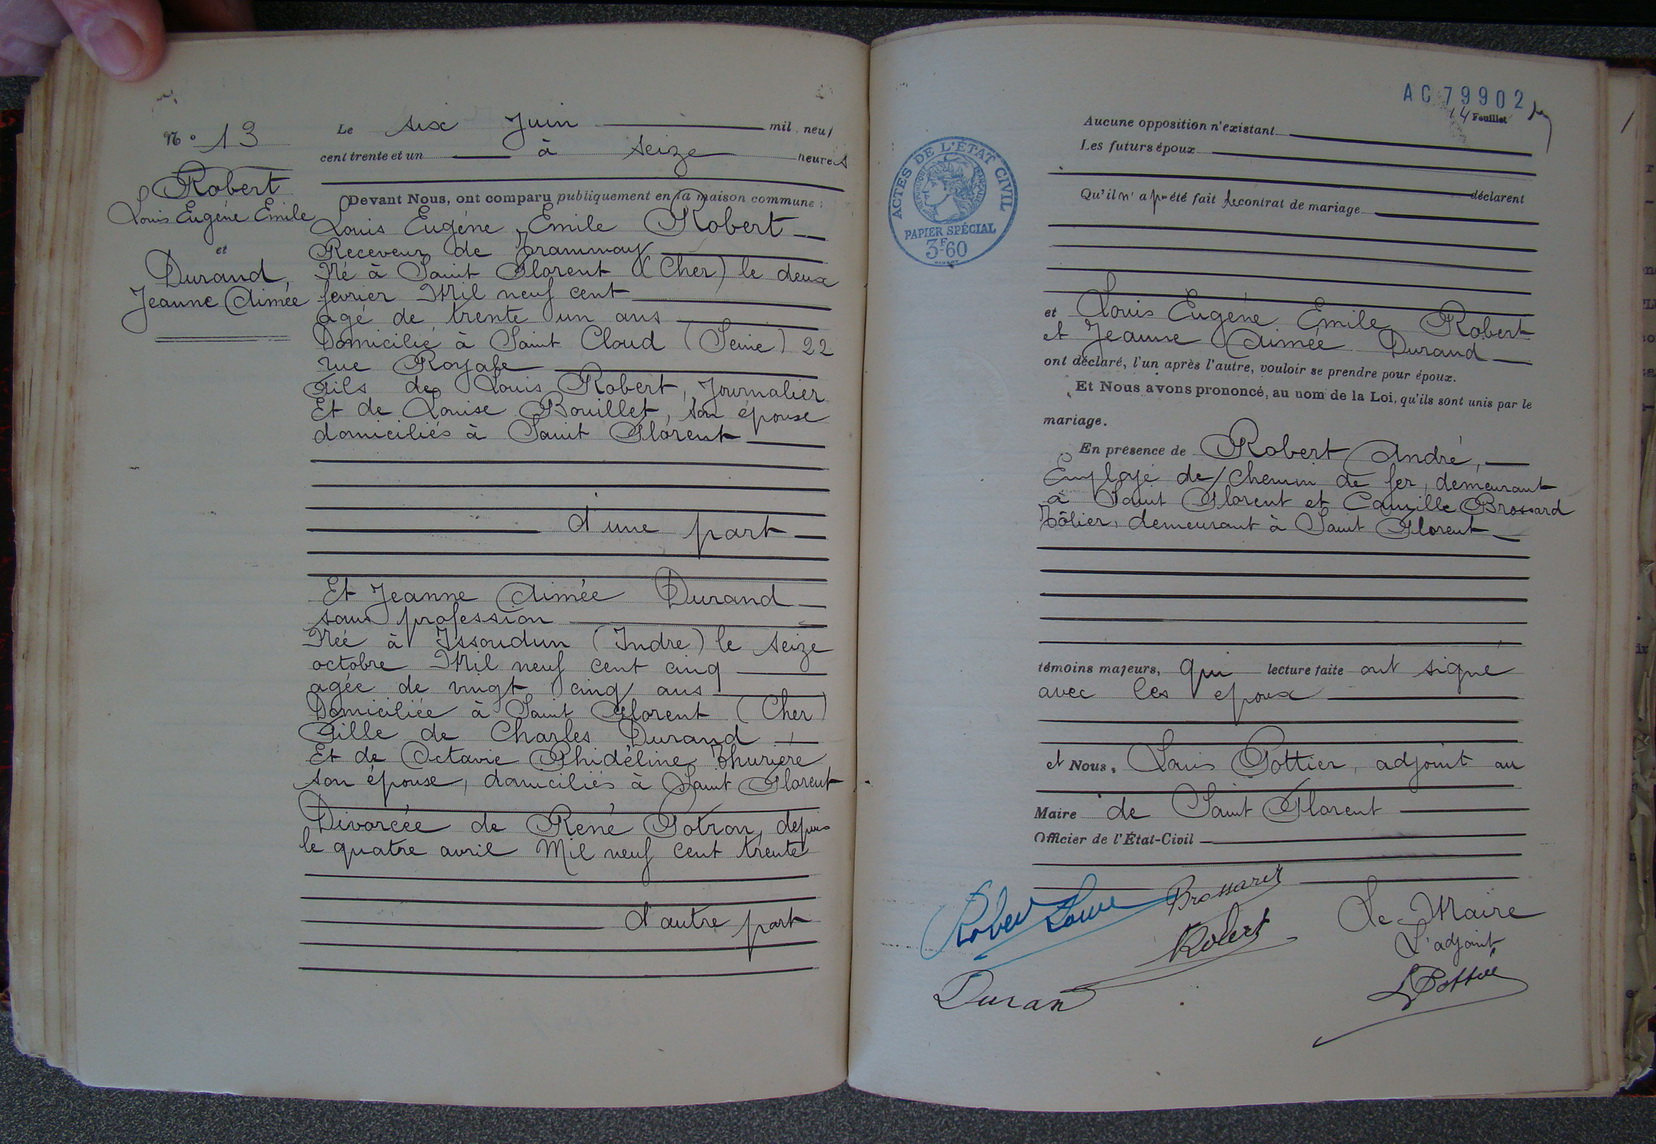 N° 13
Robert
Louis Eugène Emile
et
Durand,
Jeanne Aimée
Le six Juin mil neuf
cent trente et un à seize heures
Devant Nous, ont comparu publiquement en la maison commune :
Louis Eugène Emile Robert
Receveur de tramway
Né à Saint Florent (Cher) le deux
fevrier Mil neuf cent
agé de trente un ans
Domicilié à Saint Cloud (Seine) 22
rue Royale
Fils de Louis Robert, Journalier
Et de Louise Bouillet, son épouse
domiciliés à Saint Florent
d'une part
Et Jeanne Aimée Durand
sans profession
Née à Issoudun (Indre) le seize
octobre Mil neuf cent cinq
agée de vingt cinq ans
Domiciliée à Saint Florent (Cher)
Fille de Charles Durand
Et de Octavie Phidéline Thurière
son épouse, domiciliés à Saint Florent
Divorcée de René Potron, depuis
le quatre avril Mil neuf cent trente
d'autre part
AC 79902
14 Feuillet
ACTES DE L'ÉTAT CIVIL
PAPIER SPÉCIAL
3F60
Aucune opposition n'existant
Les futurs époux
déclarent
Qu'il n'a pas été fait de contrat de mariage
et Louis Eugène Emile Robert
et Jeanne Aimée Durand
ont déclaré, l'un après l'autre, vouloir se prendre pour époux.
Et Nous avons prononcé, au nom de la Loi, qu'ils sont unis par le
mariage.
En présence de Robert André,
Employé de chemin de fer, demeurant
à Saint Florent et Camille Brossard
Tôlier, demeurant à Saint Florent
témoins majeurs, qui lecture faite ont signé
avec les epoux
et Nous, Louis Pottier, adjoint au
Maire de Saint Florent
Officier de l'État-Civil
Robert Louis
Brossard
Robert
Duran
Le Maire
L'adjoint
L Pottier